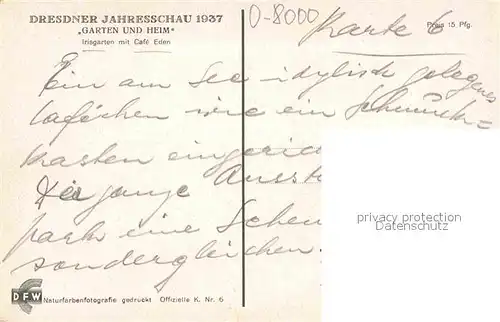 DRESDNER JAHRESSCHAU 1937
„GARTEN UND HEIM"
Irisgarten mit Café Eden
0-8000
Karte 6
Preis 15 Pfg.
Ein am See idylisch gelegenes
Caféchen wie ein Schmuck=
kasten eingeric
Der ganze Ausst
park eine Sehen
sondergleichen.
privacy protection
Datenschutz
DFW
Naturfarbenfotografie gedruckt Offizielle K. Nr. 6